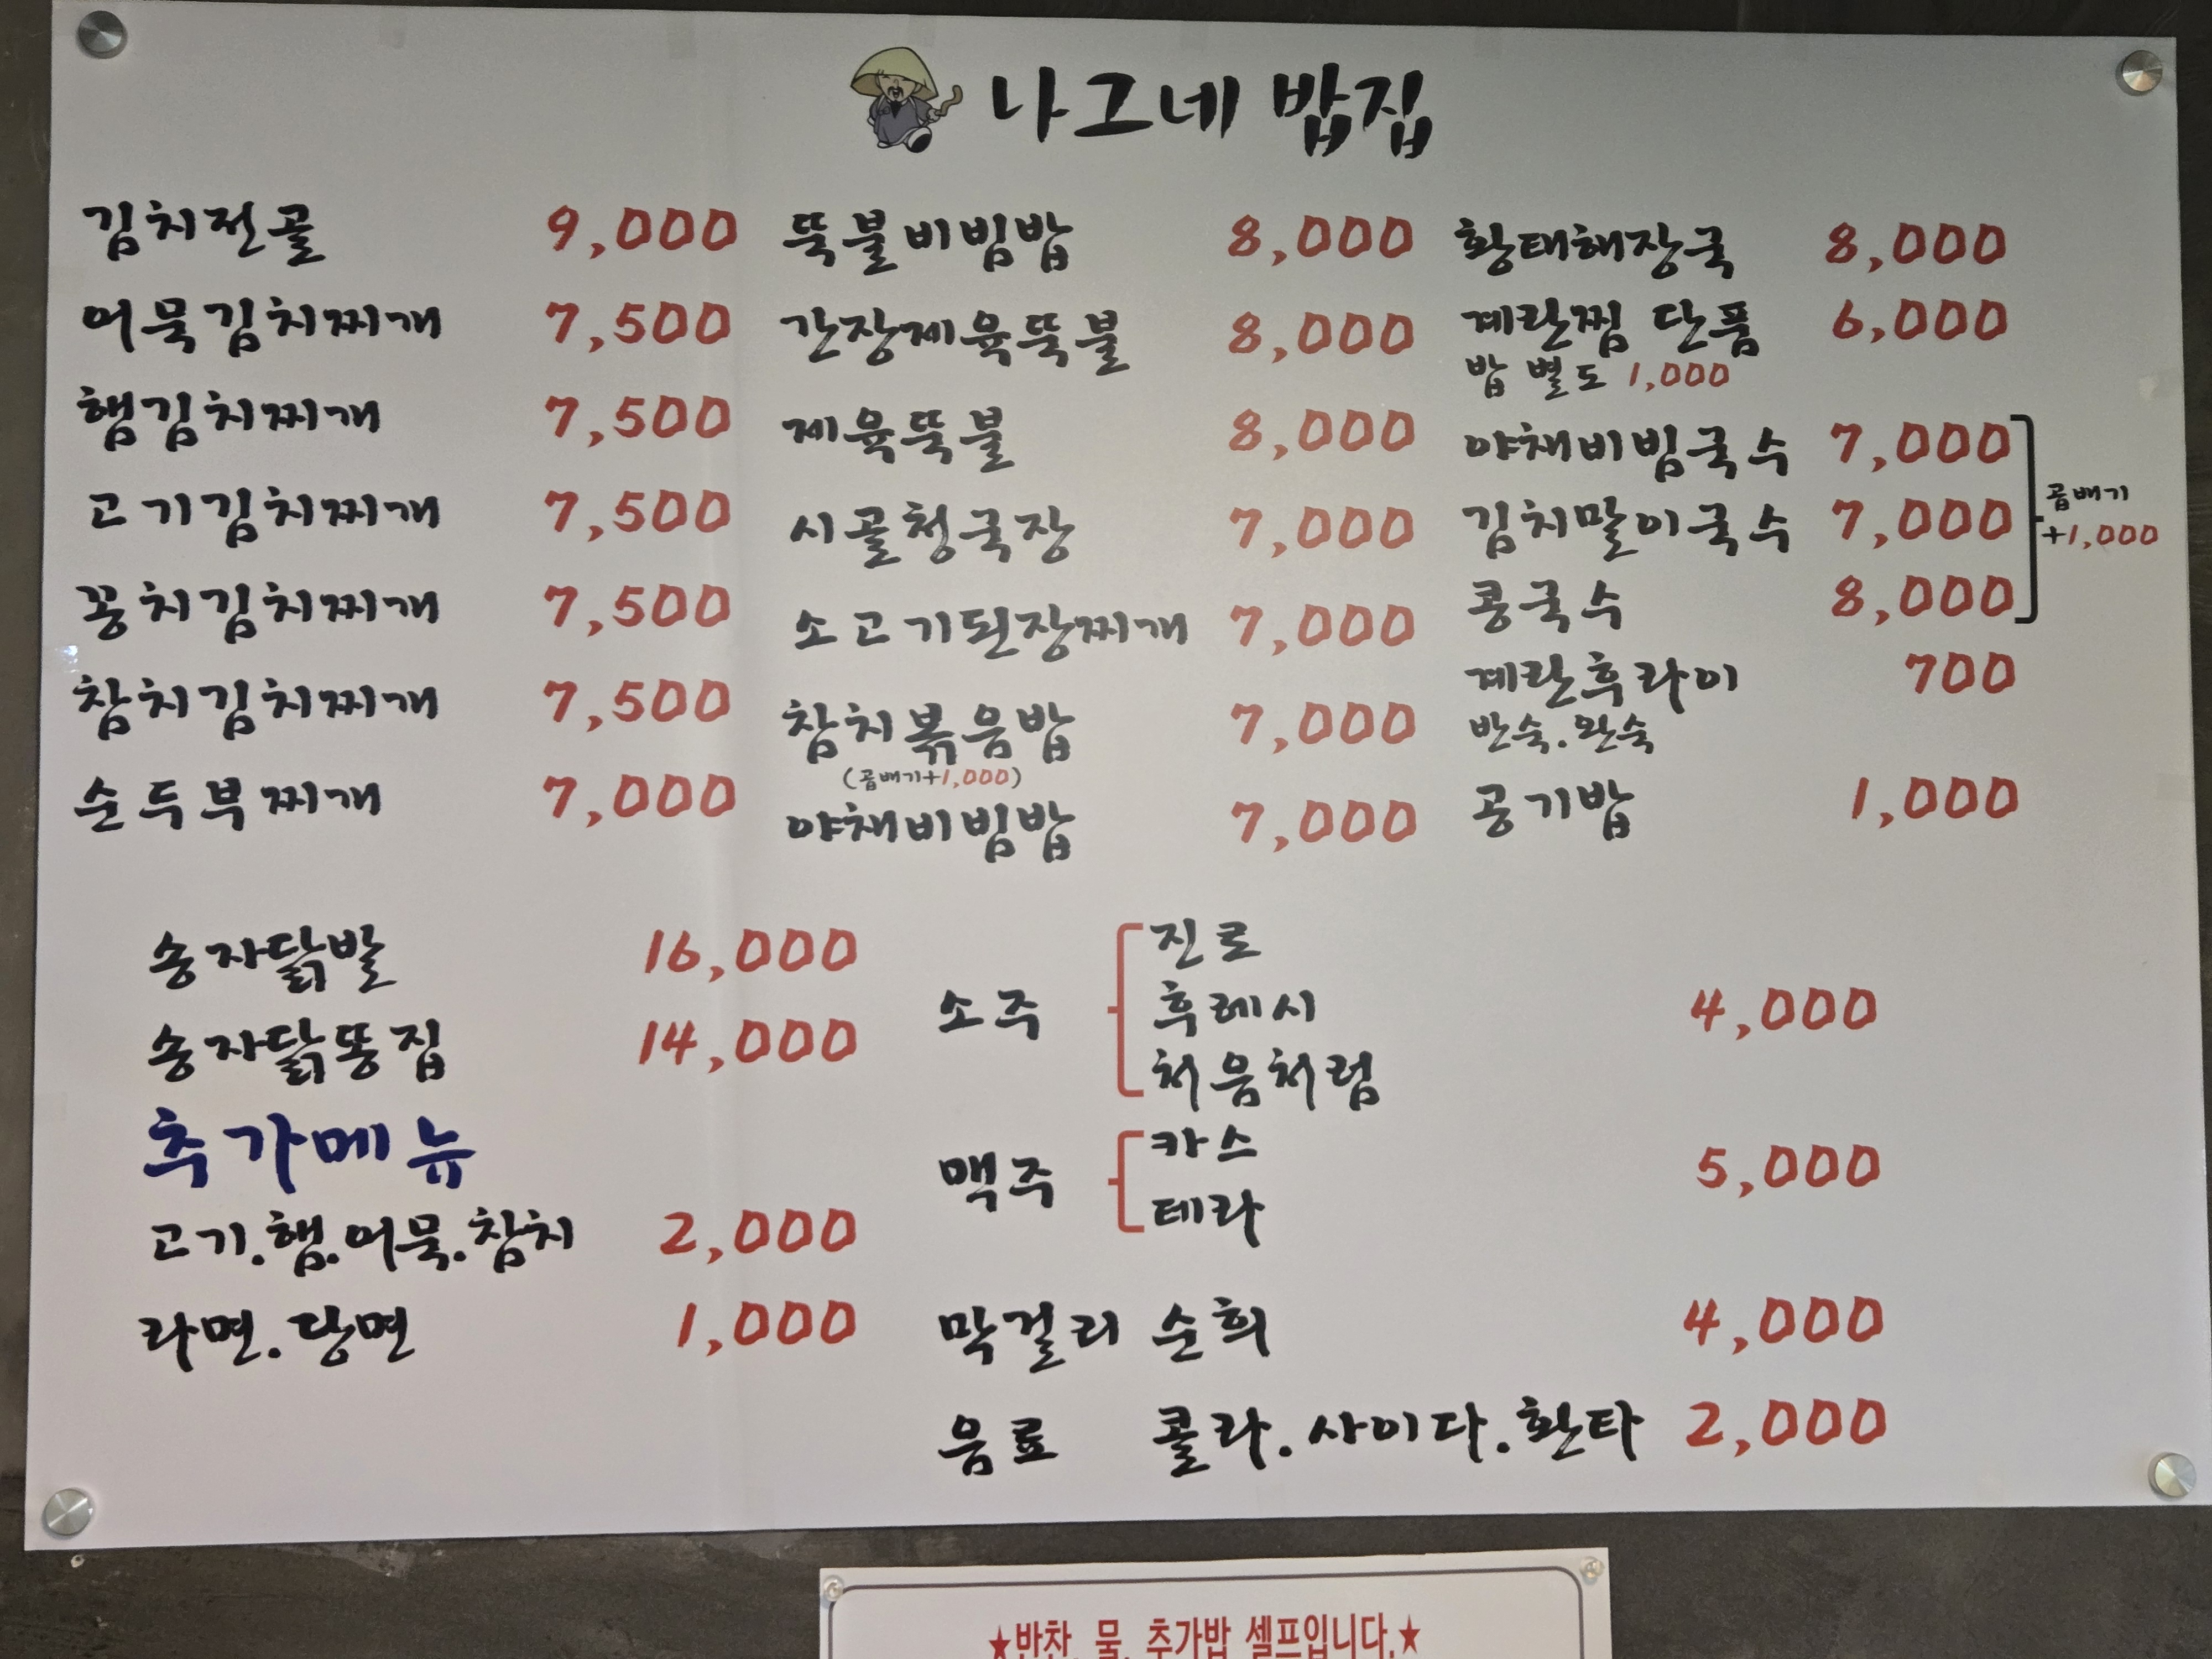 나그네 밥집
김치전골 9,000
어묵김치찌개 7,500
햄김치찌개 7,500
고기김치찌개 7,500
꽁치김치찌개 7,500
참치김치찌개 7,500
순두부찌개 7,000
뚝불비빔밥 8,000
간장제육뚝불 8,000
제육뚝불 8,000
시골청국장 7,000
소고기된장찌개 7,000
참치볶음밥 7,000
(곱배기+1,000)
야채비빔밥 7,000
황태해장국 8,000
계란찜 단품 6,000
밥 별도 1,000
야채비빔국수 7,000
김치말이국수 7,000
콩국수 8,000
곱배기
+1,000
계란후라이 700
반숙.완숙
공기밥 1,000
송자닭발 16,000
송자닭똥집 14,000
추가메뉴
고기.햄.어묵.참치 2,000
라면.당면 1,000
소주
진로
후레시
처음처럼
4,000
맥주
카스
테라
5,000
막걸리 순희 4,000
음료 콜라.사이다.환타 2,000
★반찬, 물, 추가밥 셀프입니다.★